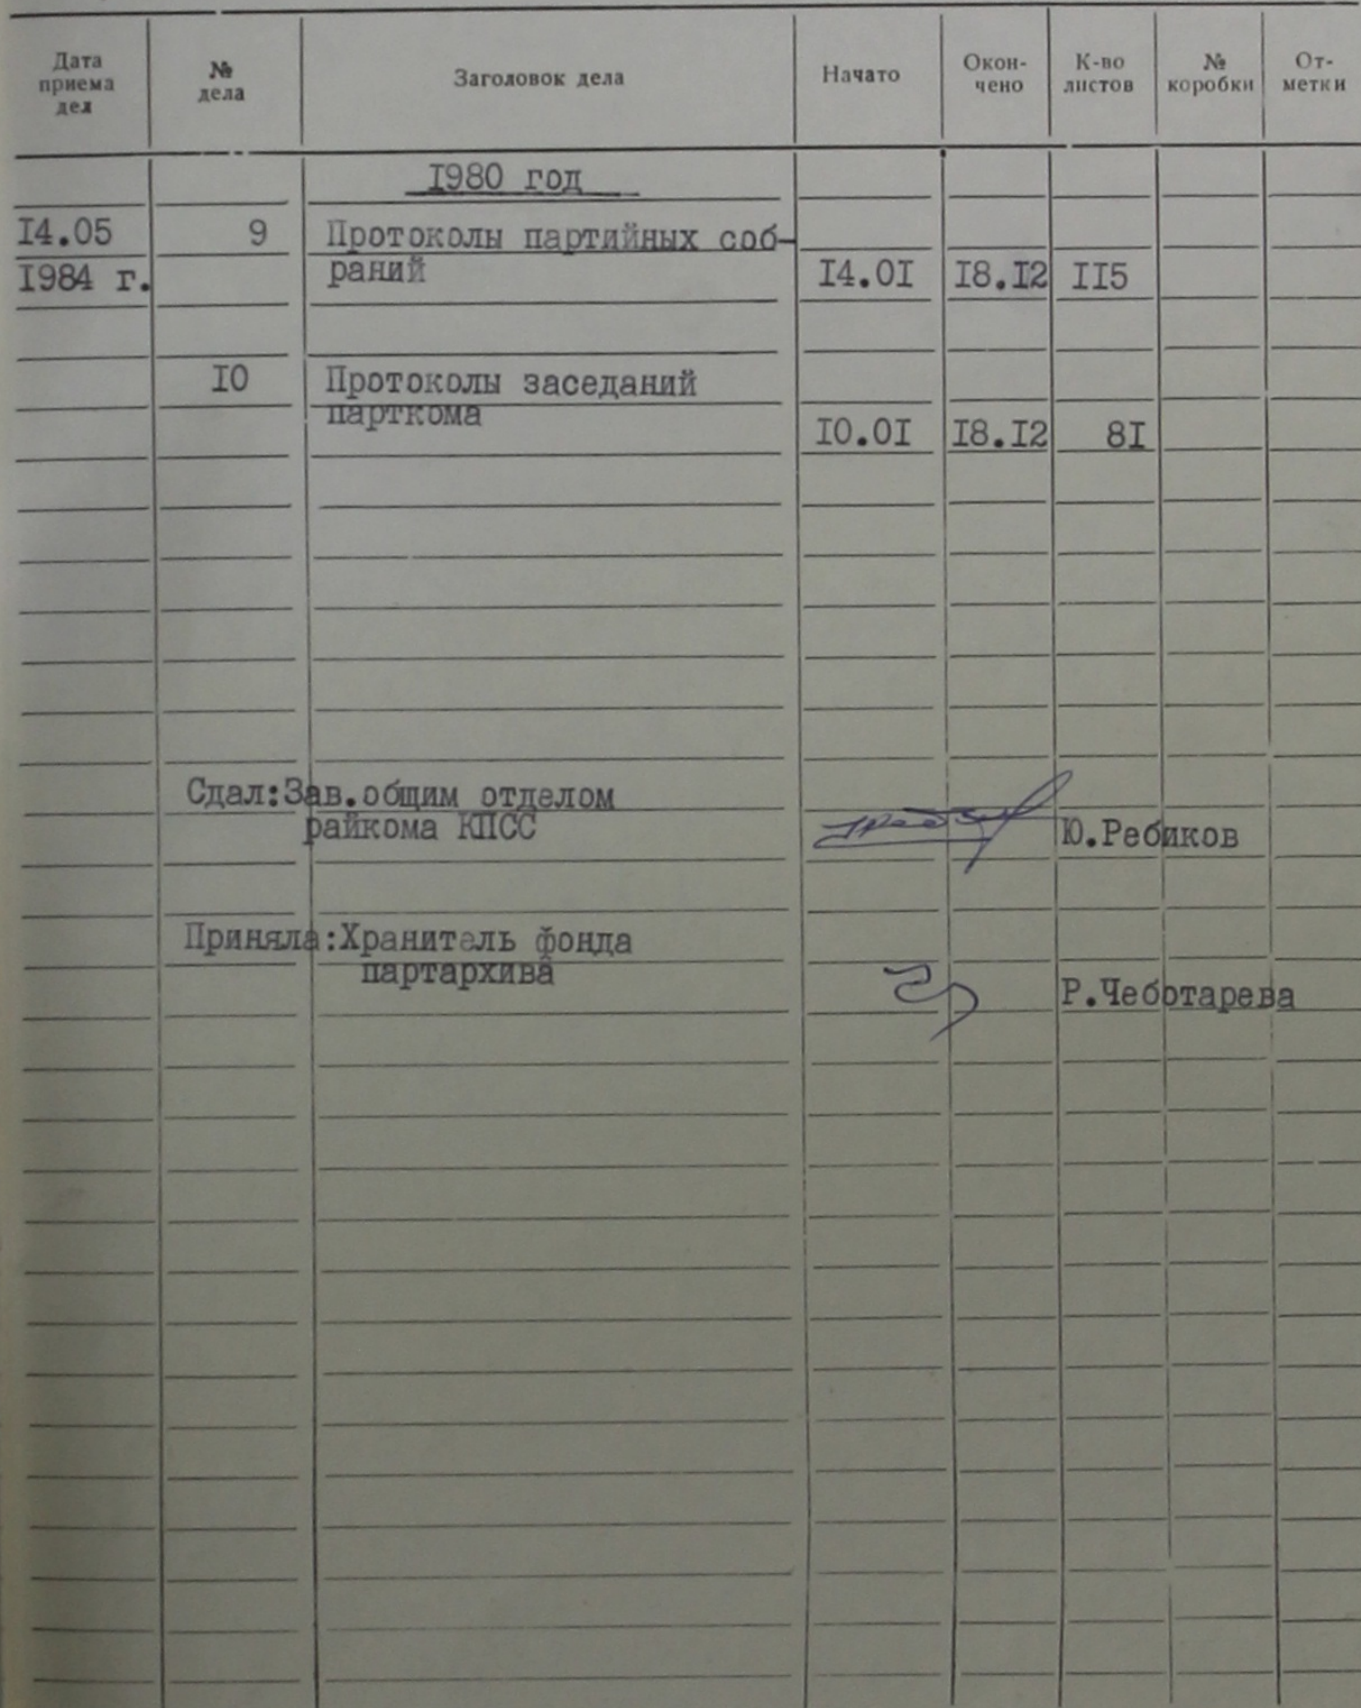 Дата приема дел № дела Заголовок дела Начато Окон- чено К-во листов № коробки От- метки
1980 год
14.05 9 Протоколы партийных соб-
1984 г. раний 14.01 18.12 115
10 Протоколы заседаний
парткома
10.01 18.12 81
Сдал:Зав.общим отделом
райкома КПСС Ю.Ребиков
Приняла:Хранитель фонда
партархива
Р.Чеботарева